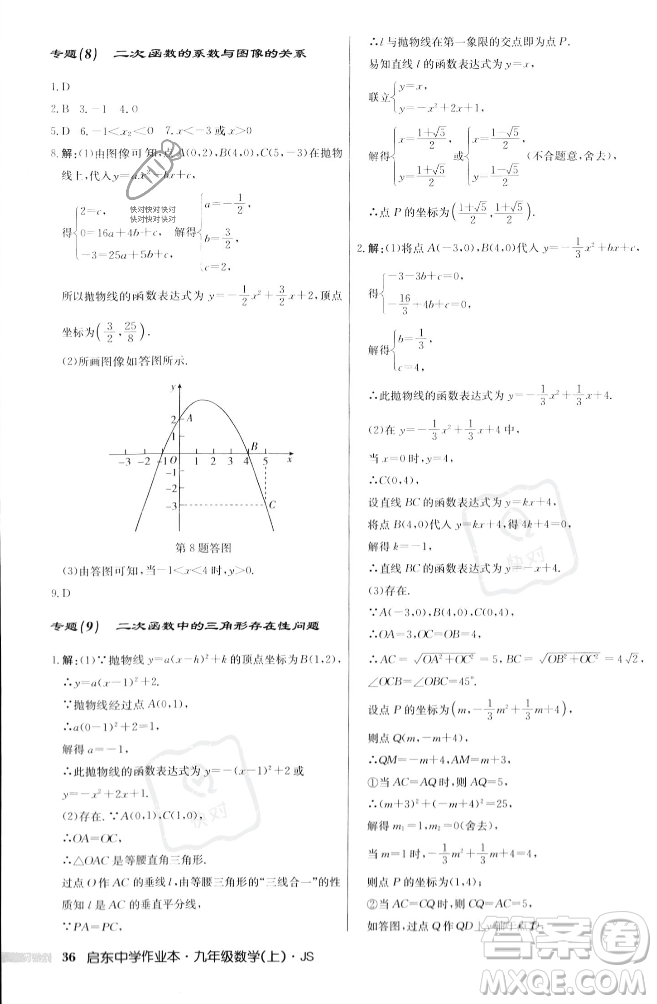 专题(8) 二次函数的系数与图像的关系
1. D
2. B 3. -1 4. 0
5. D 6. -1<x₂<0 7. x<-3或x>
8. 解:(1)由图像可知,点A(0,2),B(4,0),C(5,-3)在抛物
线上,代入y=ax²+bx+c,
得{2=c, 0=16a+4b+c, -3=25a+5b+c, 解得{a=-1/2, b=3/2, c=2.
快对快对快对
快对快对快对
所以抛物线的函数表达式为y=-1/2x²+3/2x+2,顶点
坐标为(3/2,25/8).
(2)所画图像如答图所示.
y
2 A
1
B
-3 -2 -1 O 1 2 3 4 5 x
-1
-2
-3 C
第8题答图
(3)由答图可知,当-1<x<4时,y>0.
9. D
专题(9) 二次函数中的三角形存在性问题
1. 解:(1)∵抛物线y=a(x-h)²+k的顶点坐标为B(1,2),
∴y=a(x-1)²+2.
∵抛物线经过点A(0,1),
∴a(0-1)²+2=1.
解得a=-1.
∴此抛物线的函数表达式为y=-x²+2x+1.
(2)存在.∵A(0,1),C(1,0),
∴OA=OC.
∴△OAC是等腰直角三角形.
过点O作AC的垂线l,由等腰三角形的“三线合一”的性质
知,l是AC的垂直平分线.
∵PA=PC,
∴l与抛物线在第一象限的交点即为点P.
易知直线l的函数表达式为y=x.
联立{y=x, y=-x²+2x+1,
解得{x=(1+√5)/2, y=(1+√5)/2 或{x=(1-√5)/2, y=(1-√5)/2 (不合题意,舍去),
∴点P的坐标为((1+√5)/2,(1+√5)/2).
2. 解:(1)将点A(-3,0),B(4,0)代入y=-1/3x²+bx+c,
得{-3-3b+c=0, -16/3+4b+c=0,
解得{b=1/3, c=4,
∴此抛物线的函数表达式为y=-1/3x²+1/3x+4.
(2)在y=-1/3x²+1/3x+4中,
当x=0时,y=4,
∴C(0,4).
设直线BC的函数表达式为y=kx+4,
将点B(4,0)代入,得4k+4=0,
解得k=-1,
∴直线BC的函数表达式为y=-x+4.
(3)存在.
∵A(-3,0),B(4,0),C(0,4),
∴OA=3,OB=OC=4.
∴AC=√(OA²+OC²)=5,BC=√(OB²+OC²)=4√2,
∠OCB=∠OBC=45°.
设点P的坐标为(m,-1/3m²+1/3m+4),
则点Q(m,-m+4).
①当AC=AQ时,AQ=AC=5,
∴(m+3)²+(-m+4)²=25.
解得m₁=1,m₂=0(舍去),
当m=1时,-1/3m²+1/3m+4=4,
则点P的坐标为(1,4);
②当AC=CQ时,CQ=AC=5,
如答图,过点Q作QD⊥y轴于点D,
36 启东中学作业本·九年级数学(上)·JS
快对
快对
作业精灵